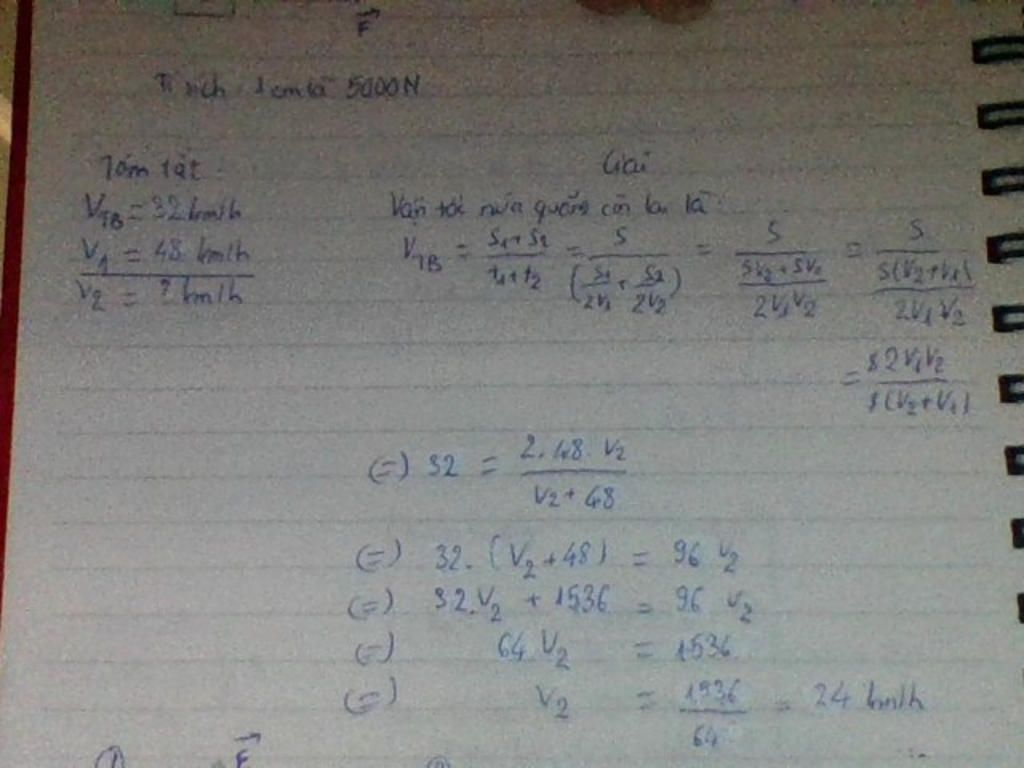 F
Tỉ xích 1 cm là 5000N
Tóm tắt:
V_TB = 32 km/h
V_1 = 48 km/h
V_2 = ? km/h
Giải
Vận tốc nửa quãng còn lại là:
V_TB = (S_1 + S_2)/(t_1 + t_2) = S/(S_1/2V_1 + S_2/2V_2) = S/((SV_2 + SV_1)/2V_1V_2) = S/(S(V_2+V_1)/2V_1V_2)
= S2V_1V_2/S(V_2+V_1)
(=) 32 = 2.48.V_2/(V_2 + 48)
(=) 32.(V_2 + 48) = 96 V_2
(=) 32.V_2 + 1536 = 96 V_2
(=) 64.V_2 = 1536
(=) V_2 = 1536/64 = 24 km/h
1
F